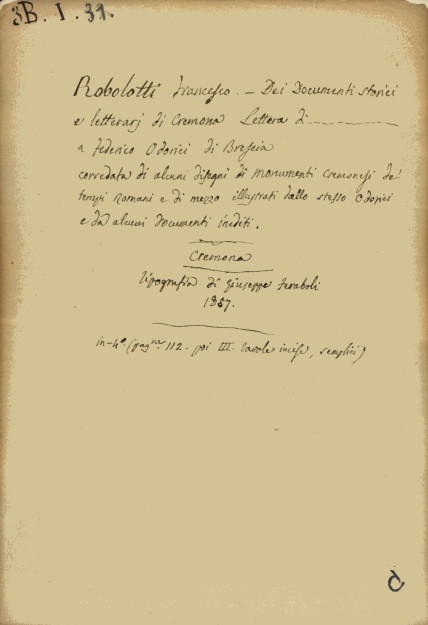 3B. I. 31.
Robolotti Francesco. — Dei Documenti storici
e letterarj di Cremona Lettera di —
a Federico Odorici di Brescia
corredata di alcuni disegni di monumenti cremonesi de'
tempi romani e di mezzo illustrati dallo stesso Odorici
e da alcuni documenti inediti.
Cremona
Tipografia di Giuseppe Feraboli
1857.
in-4°. (pagne. 112 - poi III. tavole incise, semplici)